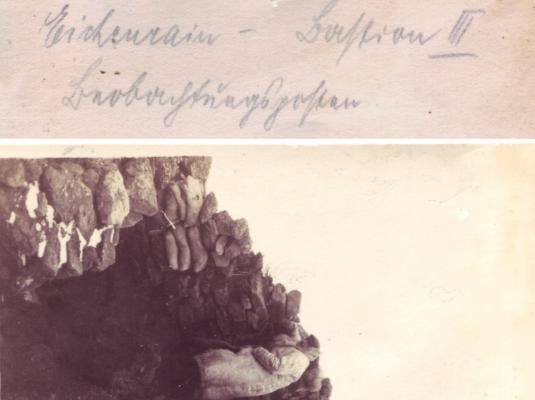 Eichenrain - Bastion III
Beobachtungsposten